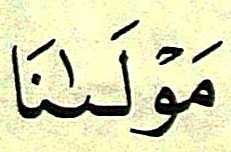 مَوْلَىٰنَا